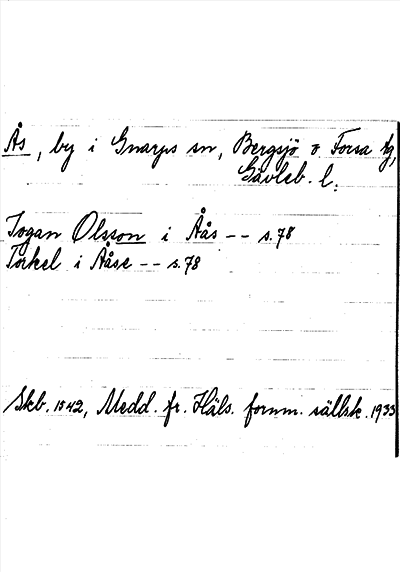 Ås, by i Gnarps sn, Bergsjö o. Forsa tg,
Gävleb. l.
Jogan Olsson i Åås -- s. 78
Torkel i Ååse -- s. 78
Skb. 1542, Medd. fr. Häls. fornm. sällsk. 1933